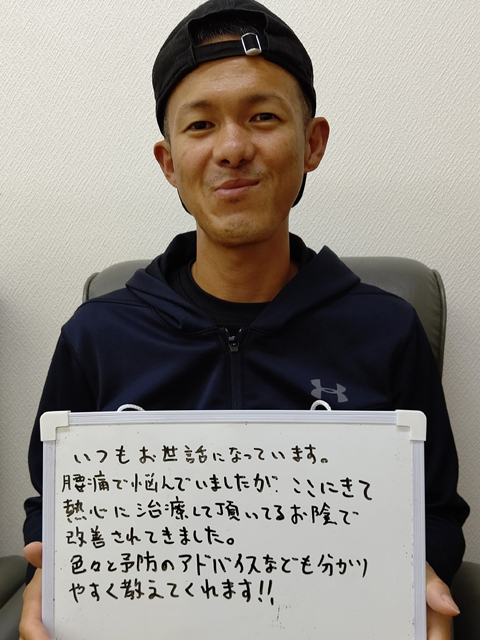 いつもお世話になっています。
腰痛で悩んでいましたが、ここにきて
熱心に治療して頂いてるお陰で
改善されてきました。
色々と予防のアドバイスなども分かり
やすく教えてくれます!!